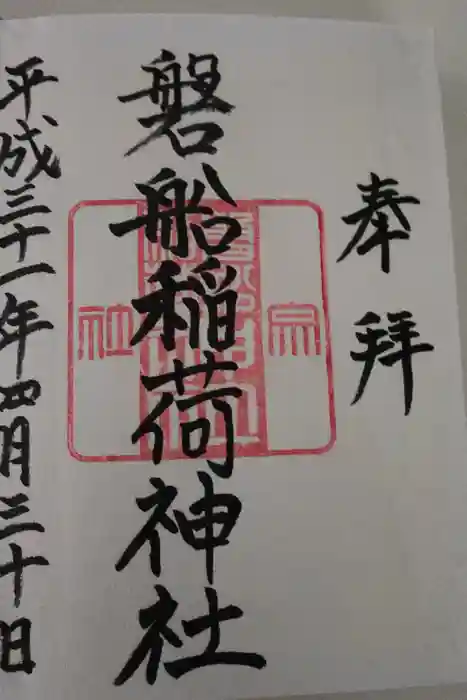 奉拝
磐船稲荷神社
平成三十一年四月三十日